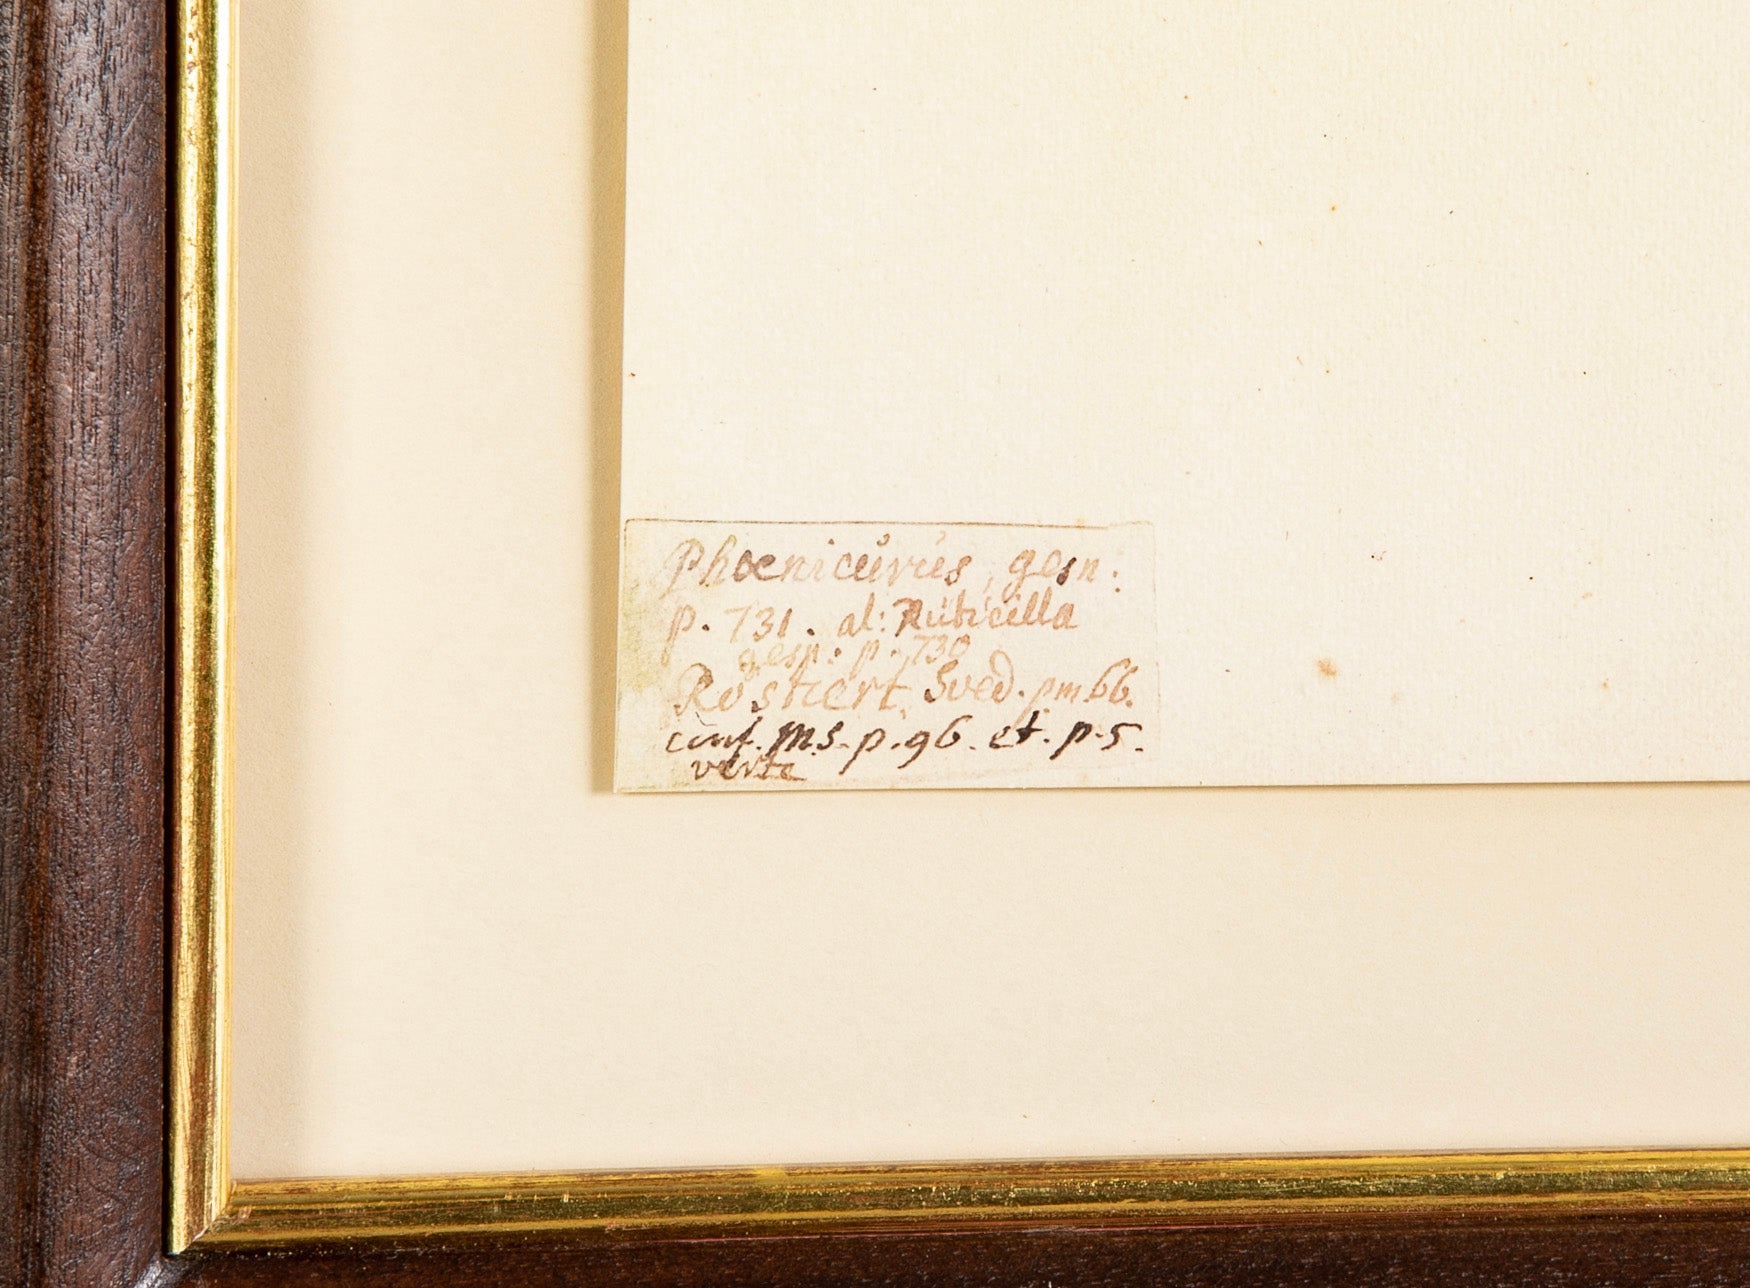 Phoenicŭrus, gesn:
p. 731. al: Ruticilla
gesn: p. 730
Rostiert, Sved. pm 66.
conf. M.S. p. 96. et. p. 5.
verte